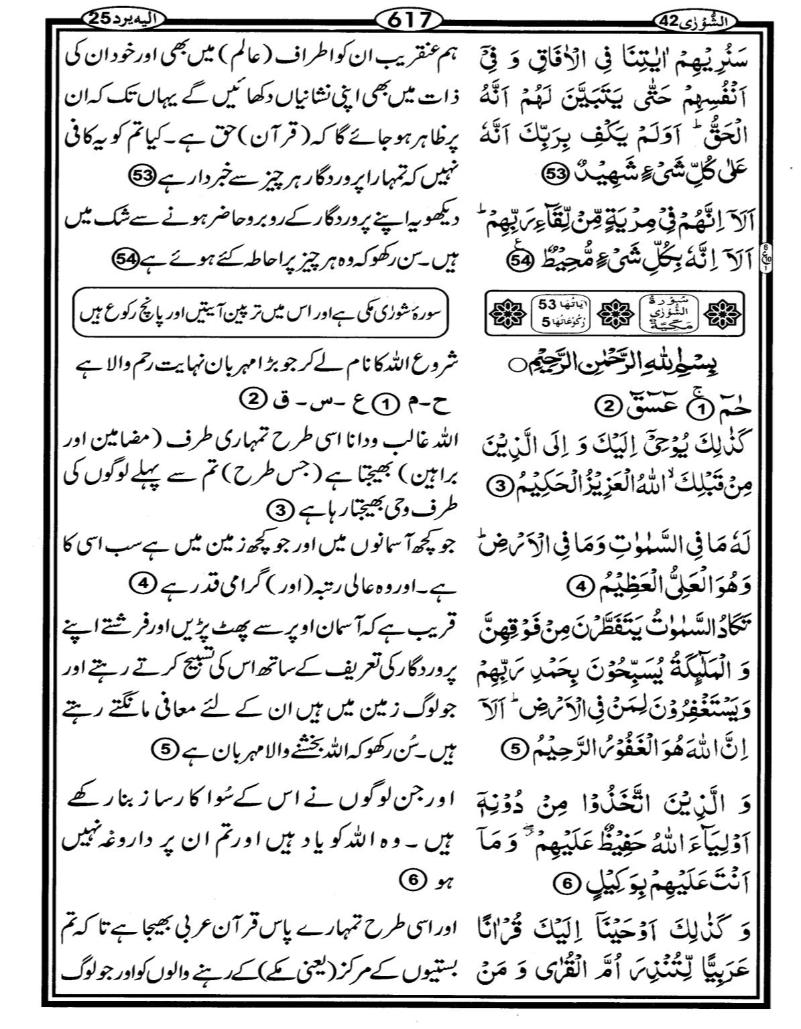 الشُّوْرٰى 42
617
الیه یرد 25
سَنُرِيْهِمْ اٰيٰتِنَا فِي الْاٰفَاقِ وَ فِيْٓ
اَنْفُسِهِمْ حَتّٰى يَتَبَيَّنَ لَهُمْ اَنَّهُ
الْحَقُّ ؕ اَوَلَمْ يَكْفِ بِرَبِّكَ اَنَّهٗ
عَلٰى كُلِّ شَيْءٍ شَهِيْدٌ 53
اَلَاۤ اِنَّهُمْ فِيْ مِرْيَةٍ مِّنْ لِّقَآءِ رَبِّهِمْ ؕ
اَلَاۤ اِنَّهٗ بِكُلِّ شَيْءٍ مُّحِيْطٌ 54
سُوْرَةُ
الشُّوْرٰى
مَكِّيَّةٌ
اٰيَاتُهَا 53
رُكُوْعَاتُهَا 5
بِسْمِ اللّٰهِ الرَّحْمٰنِ الرَّحِيْمِ ○
حٰمٓ ۚ 1 عٓسٓقٓ 2
كَذٰلِكَ يُوْحِيْٓ اِلَيْكَ وَ اِلَى الَّذِيْنَ
مِنْ قَبْلِكَ ۙ اللّٰهُ الْعَزِيْزُ الْحَكِيْمُ 3
لَهٗ مَا فِي السَّمٰوٰتِ وَمَا فِي الْاَرْضِ ؕ
وَهُوَ الْعَلِيُّ الْعَظِيْمُ 4
تَكَادُ السَّمٰوٰتُ يَتَفَطَّرْنَ مِنْ فَوْقِهِنَّ
وَ الْمَلٰٓئِكَةُ يُسَبِّحُوْنَ بِحَمْدِ رَبِّهِمْ
وَيَسْتَغْفِرُوْنَ لِمَنْ فِي الْاَرْضِ ؕ اَلَاۤ
اِنَّ اللّٰهَ هُوَ الْغَفُوْرُ الرَّحِيْمُ 5
وَ الَّذِيْنَ اتَّخَذُوْا مِنْ دُوْنِهٖٓ
اَوْلِيَآءَ اللّٰهُ حَفِيْظٌ عَلَيْهِمْ ۖ وَ مَاۤ
اَنْتَ عَلَيْهِمْ بِوَكِيْلٍ 6
وَ كَذٰلِكَ اَوْحَيْنَاۤ اِلَيْكَ قُرْاٰنًا
عَرَبِيًّا لِّتُنْذِرَ اُمَّ الْقُرٰى وَ مَنْ
ہم عنقریب ان کو اطراف (عالم) میں بھی اور خود ان کی
ذات میں بھی اپنی نشانیاں دکھائیں گے یہاں تک کہ ان
پر ظاہر ہو جائے گا کہ (قرآن) حق ہے۔ کیا تم کو یہ کافی
نہیں کہ تمہارا پروردگار ہر چیز سے خبردار ہے 53
دیکھو یہ اپنے پروردگار کے روبرو حاضر ہونے سے شک میں
ہیں۔ سن رکھو کہ وہ ہر چیز پر احاطہ کئے ہوئے ہے 54
سورۂ شوریٰ مکی ہے اور اس میں ترپن آیتیں اور پانچ رکوع ہیں
شروع اللہ کا نام لے کر جو بڑا مہربان نہایت رحم والا ہے
ح-م 1 ع-س-ق 2
اللہ غالب ودانا اسی طرح تمہاری طرف (مضامین اور
براہین) بھیجتا ہے (جس طرح) تم سے پہلے لوگوں کی
طرف وحی بھیجتا رہا ہے 3
جو کچھ آسمانوں میں اور جو کچھ زمین میں ہے سب اسی کا
ہے۔ اور وہ عالی رتبہ (اور) گرامی قدر ہے 4
قریب ہے کہ آسمان اوپر سے پھٹ پڑیں اور فرشتے اپنے
پروردگار کی تعریف کے ساتھ اس کی تسبیح کرتے رہتے اور
جو لوگ زمین میں ہیں ان کے لئے معافی مانگتے رہتے
ہیں۔ سُن رکھو کہ اللہ بخشنے والا مہربان ہے 5
اور جن لوگوں نے اس کے سُوا کارساز بنا رکھے
ہیں۔ وہ اللہ کو یاد ہیں اور تم ان پر داروغہ نہیں
ہو 6
اور اسی طرح تمہارے پاس قرآن عربی بھیجا ہے تاکہ تم
بستیوں کے مرکز (یعنی مکے) کے رہنے والوں کو اور جو لوگ